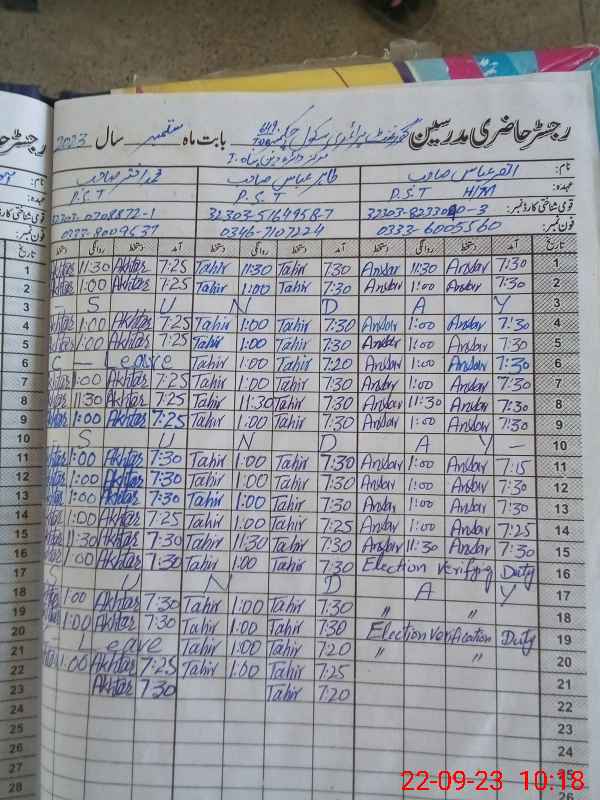 رجسٹر حاضری مدرسین گورنمنٹ پرائمری سکول بابت ماہ ستمبر سال 2023
نام: اظہر عباس صاحب طاہر عباس صاحب محمد اختر صاحب
عہدہ: P.S.T H/M P.S.T P.S.T
قومی شناختی کارڈ نمبر: 32303-5164958-7 32303-0708872-1
فون نمبر: 0333-6005560 0346-7107224 0333-8009637
تاریخ آمد دستخط روانگی دستخط آمد دستخط روانگی دستخط آمد دستخط روانگی دستخط تاریخ
1 11:30 Akhtar 7:25 Tahir 11:30 Tahir 7:30 Ansar 11:30 Ansar 7:30 1
2 1:00 Akhtar 7:25 Tahir 1:00 Tahir 7:30 Ansar 1:00 Ansar 7:30 2
3 S U N D A Y 3
4 1:00 Akhtar 7:25 Tahir 1:00 Tahir 7:30 Ansar 1:00 Ansar 7:30 4
5 1:00 Akhtar 7:25 Tahir 1:00 Tahir 7:30 Ansar 1:00 Ansar 7:30 5
6 C — Leave Tahir 1:00 Tahir 7:20 Ansar 1:00 Ansar 7:30 6
7 1:00 Akhtar 7:25 Tahir 1:00 Tahir 7:30 Ansar 1:00 Ansar 7:30 7
8 11:30 Akhtar 7:25 Tahir 11:30 Tahir 7:30 Ansar 11:30 Ansar 7:30 8
9 1:00 Akhtar 7:25 Tahir 1:00 Tahir 7:30 Ansar 1:00 Ansar 7:30 9
10 S U N D A Y — 10
11 1:00 Akhtar 7:30 Tahir 1:00 Tahir 7:30 Ansar 1:00 Ansar 7:15 11
12 1:00 Akhtar 7:30 Tahir 1:00 Tahir 7:30 Ansar 1:00 Ansar 7:30 12
13 1:00 Akhtar 7:30 Tahir 1:00 Tahir 7:30 Ansar 1:00 Ansar 7:30 13
14 1:00 Akhtar 7:25 Tahir 1:00 Tahir 7:25 Ansar 1:00 Ansar 7:25 14
15 11:30 Akhtar 7:30 Tahir 11:30 Tahir 7:30 Ansar 11:30 Ansar 7:30 15
16 1:00 Akhtar 7:30 Tahir 1:00 Tahir 7:30 Election Verifying Duty 16
17 S U N D A Y 17
18 1:00 Akhtar 7:30 Tahir 1:00 Tahir 7:30 " " 18
19 1:00 Akhtar 7:30 Tahir 1:00 Tahir 7:30 Election Verification Duty 19
20 C Leave Tahir 1:00 Tahir 7:20 " " 20
21 1:00 Akhtar 7:25 Tahir 1:00 Tahir 7:25 21
22 Akhtar 7:30 Tahir 7:20 22
23 23
24 24
25 25
26 26
27
28
22-09-23 10:18